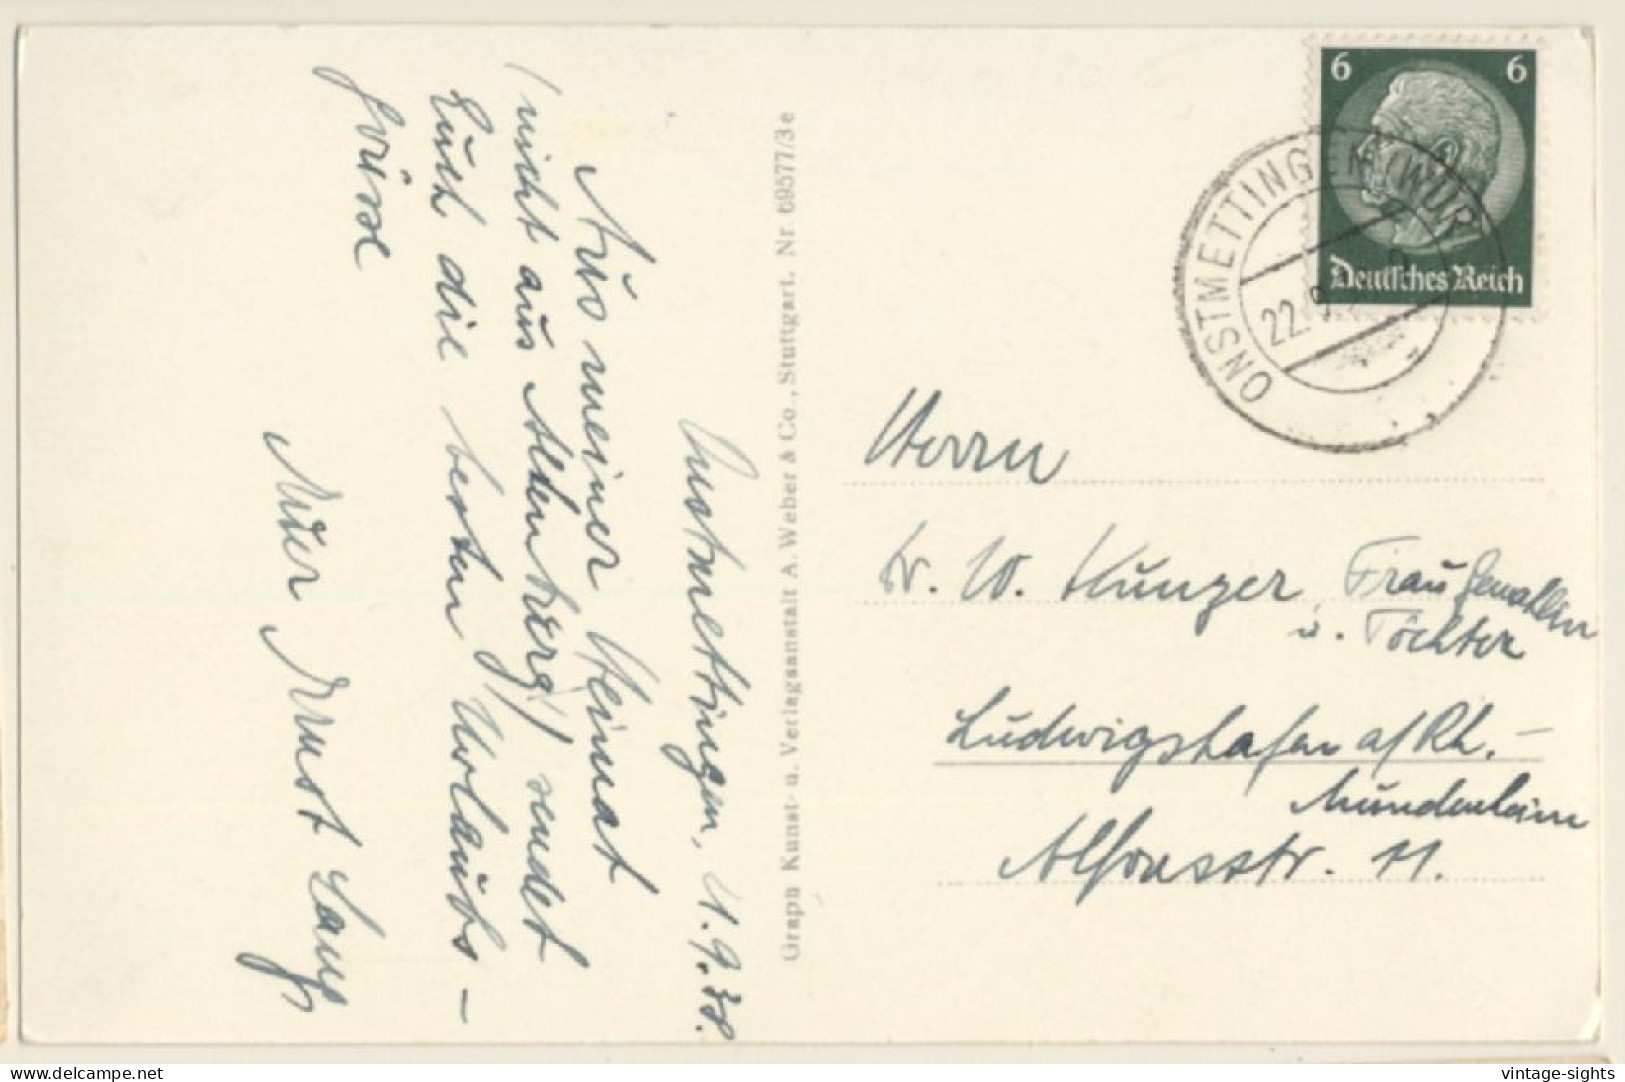 Onstmettingen, 21.9.38.
Aus meiner Heimat
(nicht aus Altenberg) sendet
Euch die besten Urlaubs-
grüsse
Euer Ernst Lang
Graph Kunst- u. Verlagsanstalt A. Weber & Co., Stuttgart. Nr 69577/3e
6 6
Deutsches Reich
ONSTMETTINGEN (WÜR
22.9
Herrn
Dr. W. Kunzer, Frau Gemahlin
u. Töchter
Ludwigshafen a/Rh.-
Mundenheim
Alfonsstr. 11.
vintage-sights